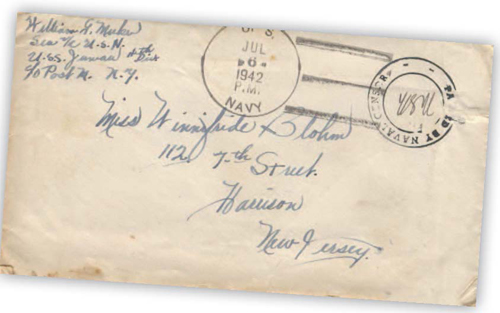 William G.
Sea 1/c U.S.N.
U.S.S. 4th Div
c/o Post M. N.Y.
U. S.
JUL
6
1942
P.M.
NAVY
PASSED BY NAVAL CENSOR
Miss Winnifride Blohm
112 7th Street
Harrison
New Jersey.